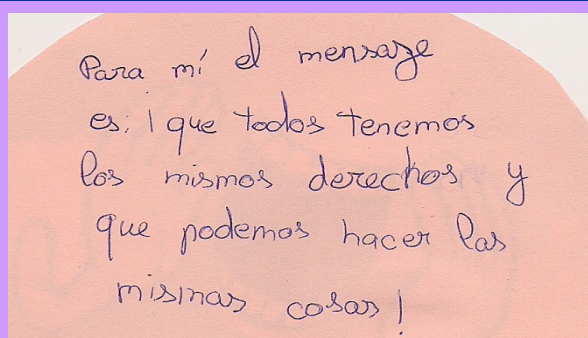 Para mí el mensaje
es: ¡que todos tenemos
los mismos derechos y
que podemos hacer las
mismas cosas!